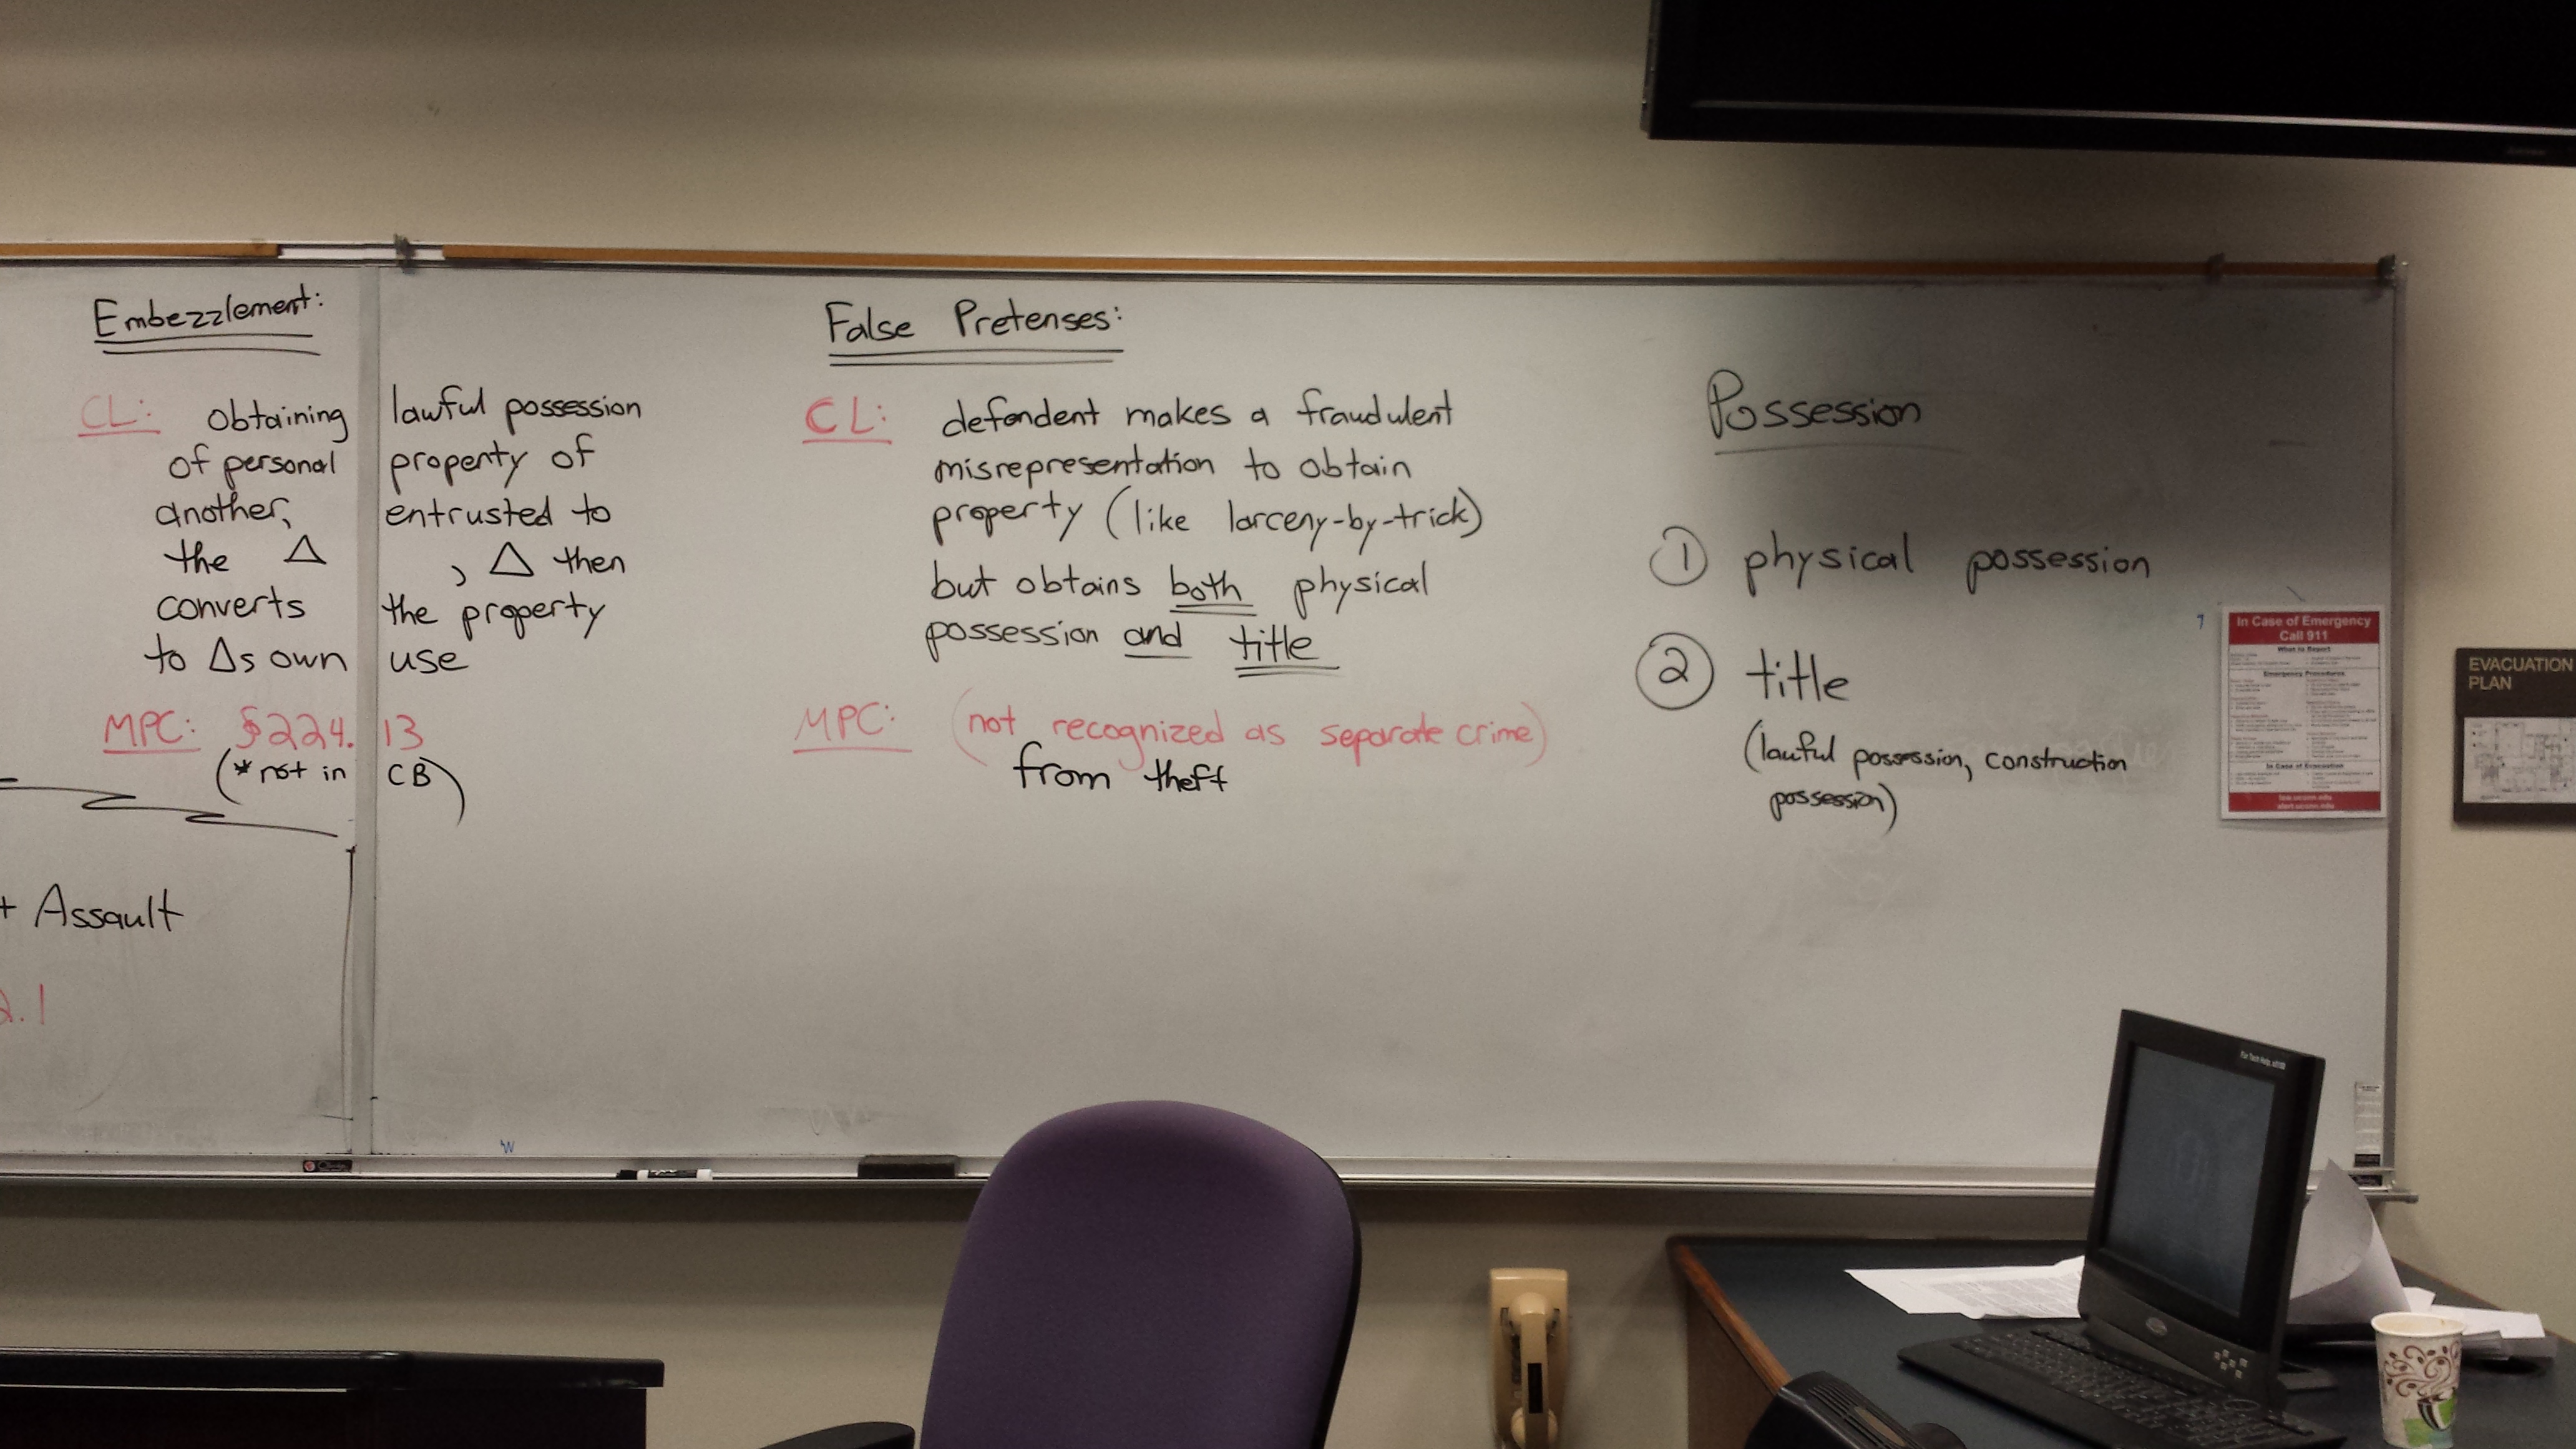 Embezzlement:
CL: obtaining lawful possession
of personal property of
another, entrusted to
the Δ, Δ then
converts the property
to Δs own use
MPC: §224.13
(*not in CB)
+ Assault
2.1
False Pretenses:
CL: defendent makes a fraudulent
misrepresentation to obtain
property (like larceny-by-trick)
but obtains both physical
possession and title
MPC: (not recognized as separate crime)
from theft
Possession
① physical possession
② title
(lawful possession, construction
possession)
In Case of Emergency
Call 911
What to Report
Emergency Procedures
In Case of Evacuation
EVACUATION
PLAN
W